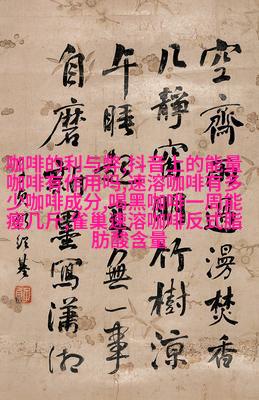 咖啡的利与弊,抖音上的能量
咖啡有作用吗,速溶咖啡有多
少咖啡成分,喝黑咖啡一周能
瘦几斤,雀巢速溶咖啡反式脂
肪酸含量
空齋過漫焚香
几靜窗明竹樹涼
午睡無一事
自磨新墨寫瀟湘